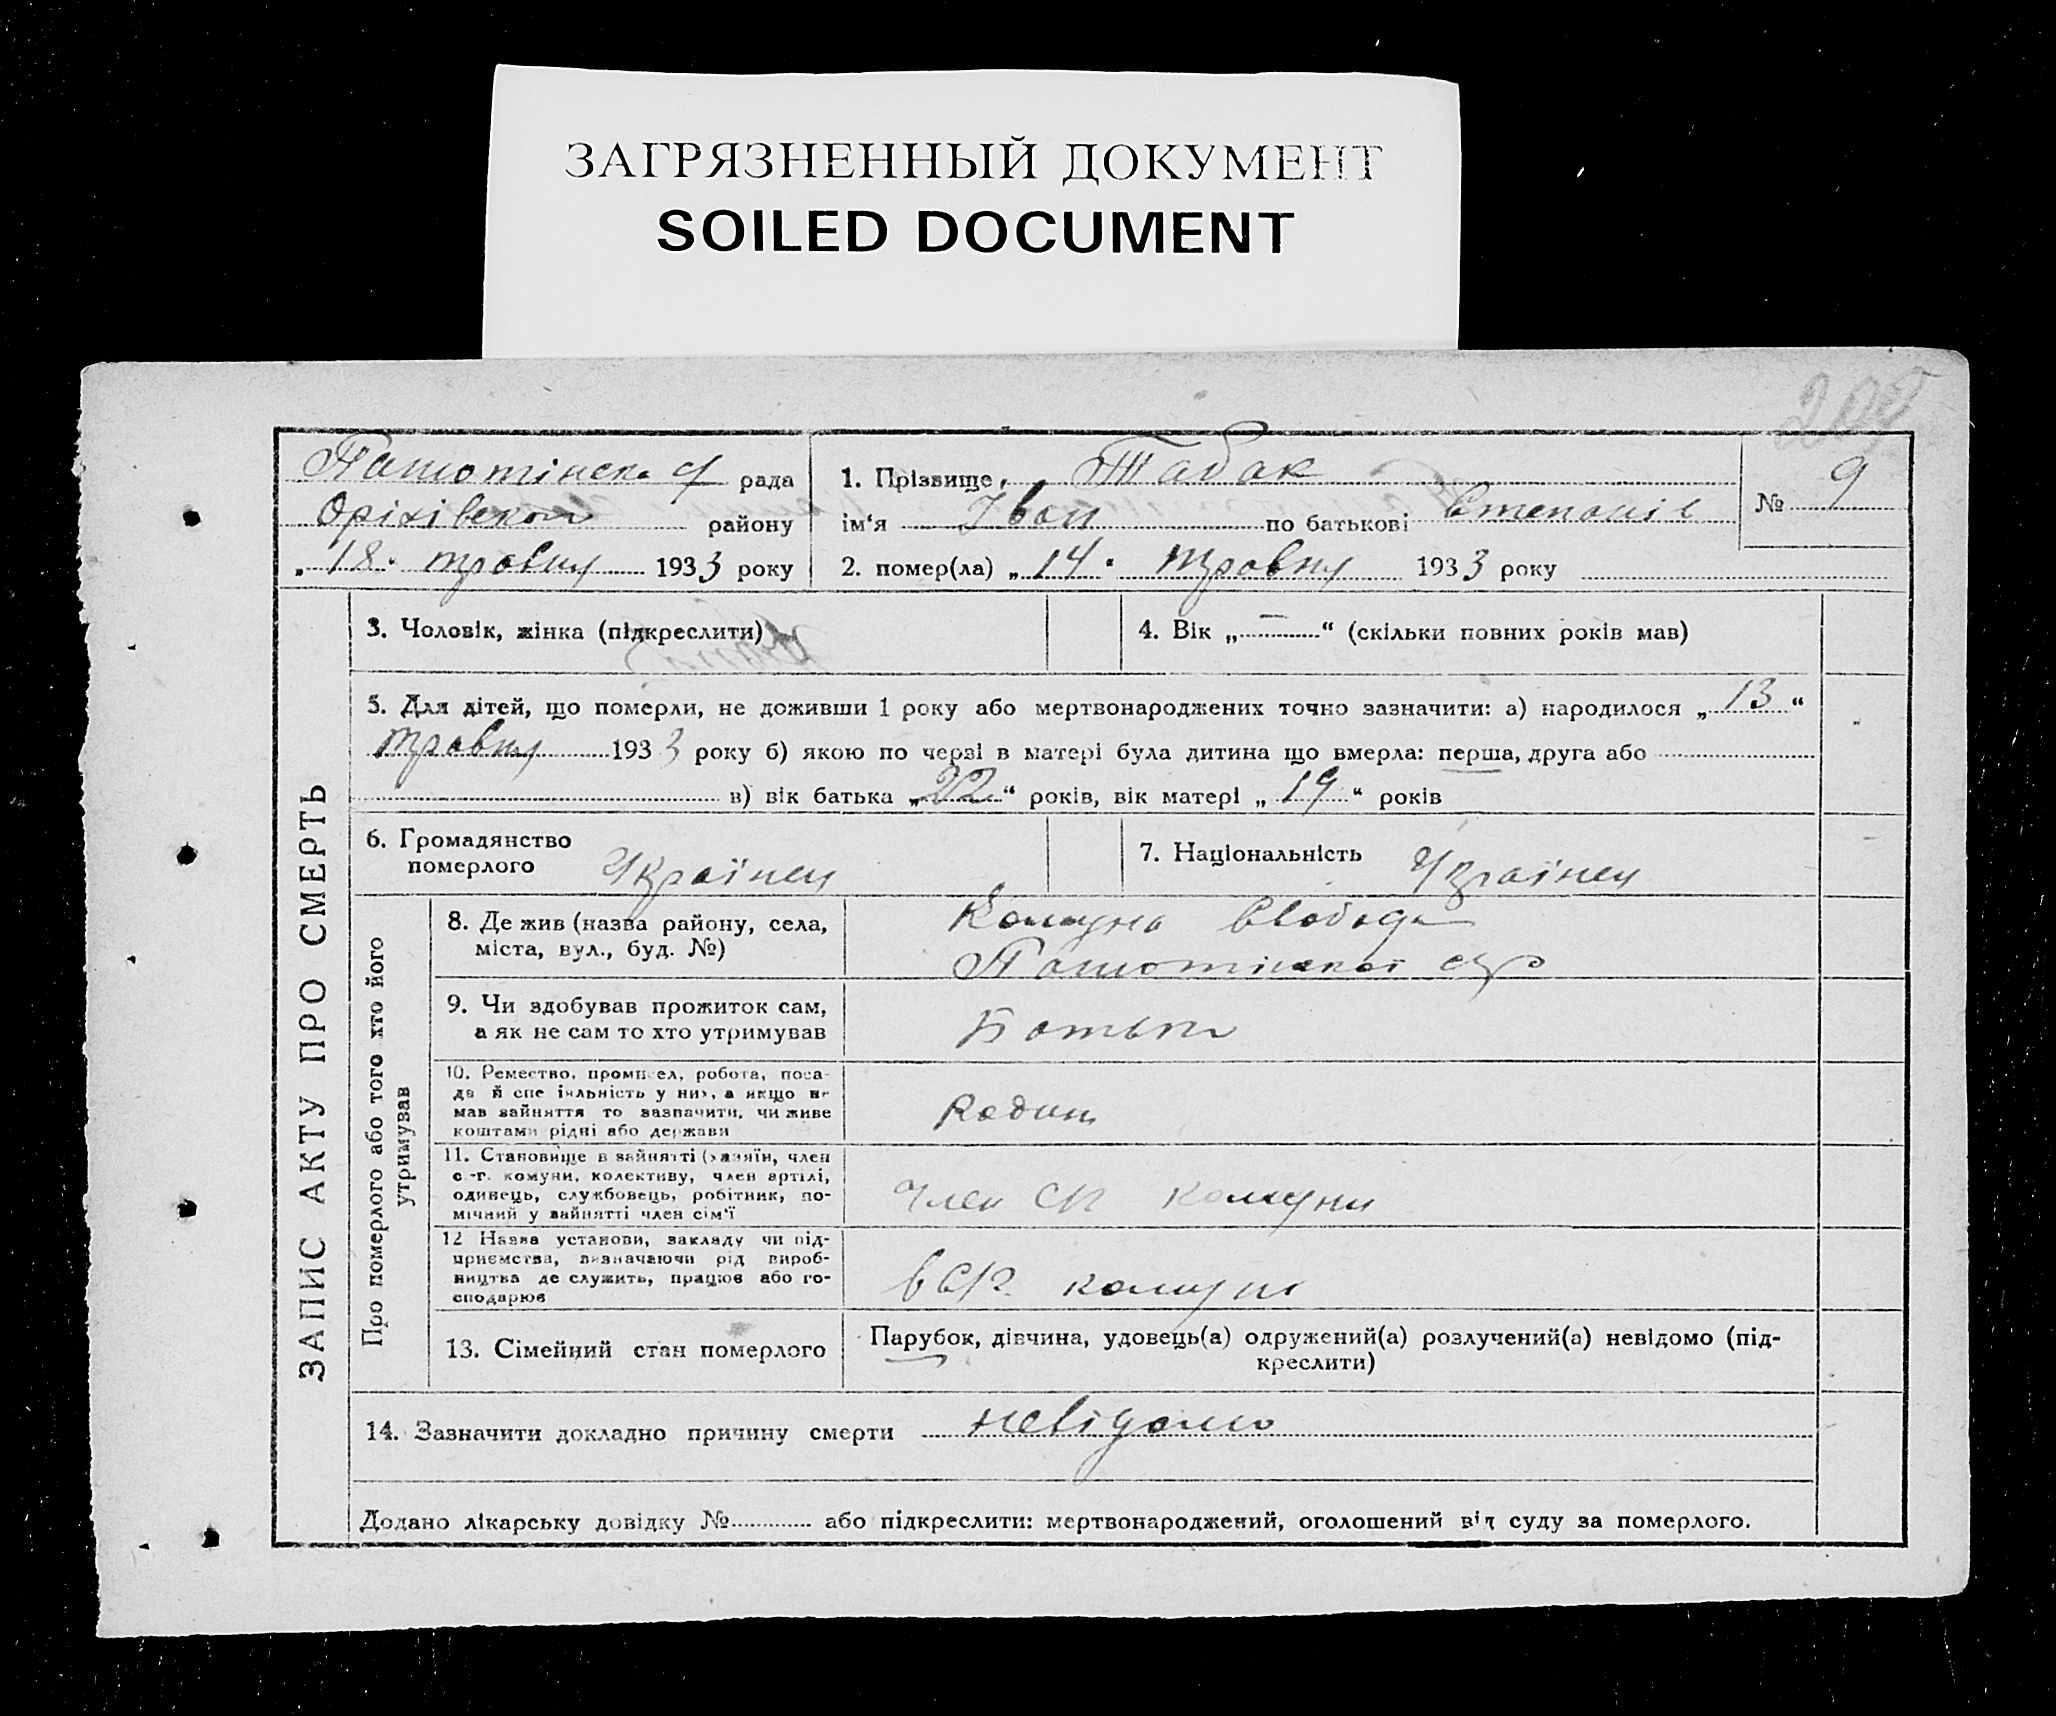 ЗАГРЯЗНЕННЫЙ ДОКУМЕНТ
SOILED DOCUMENT
209
рада
Оріхівской району
„18" травня 1933 року
1. Прізвище Табак
ім'я Іван по батькові Степанів
№ 9
2. помер(ла) „14" травня 1933 року
ЗАПИС АКТУ ПРО СМЕРТЬ
3. Чоловік, жінка (підкреслити)
4. Вік „—“ (скільки повних років мав)
5. Для дітей, що померли, не доживши 1 року або мертвонароджених точно зазначити: а) народилося „13“
травня 1933 року б) якою по черзі в матері була дитина що вмерла: перша, друга або
в) вік батька „22“ років, вік матері „19“ років
6. Громадянство
померлого Українец
7. Національність Українец
Про померлого або того хто його
утримував
8. Де жив (назва району, села,
міста, вул., буд. №)
Комуна Свобода
9. Чи здобував прожиток сам,
а як не сам то хто утримував
Батько
10. Ремество, промисел, робота, поса-
да й спеціяльність у них, а якщо не
мав зайняття то зазначити, чи живе
коштами рідні або держави
11. Становище в зайнятті (хазяїн, член
с.-г. комуни, колективу, член артілі,
одинець, службовець, робітник, по-
мічний у зайнятті член сім'ї
Член СГ комуни
12 Назва установи, закладу чи під-
приємства, визначаючи рід вироб-
ництва де служить, працює або го-
сподарює
в СГ комуні
13. Сімейний стан померлого
Парубок, дівчина, удовець(а) одружений(а) розлучений(а) невідомо (під-
креслити)
14. Зазначити докладно причину смерти невідомо
Додано лікарську довідку № або підкреслити: мертвонароджений, оголошений від суду за померлого.